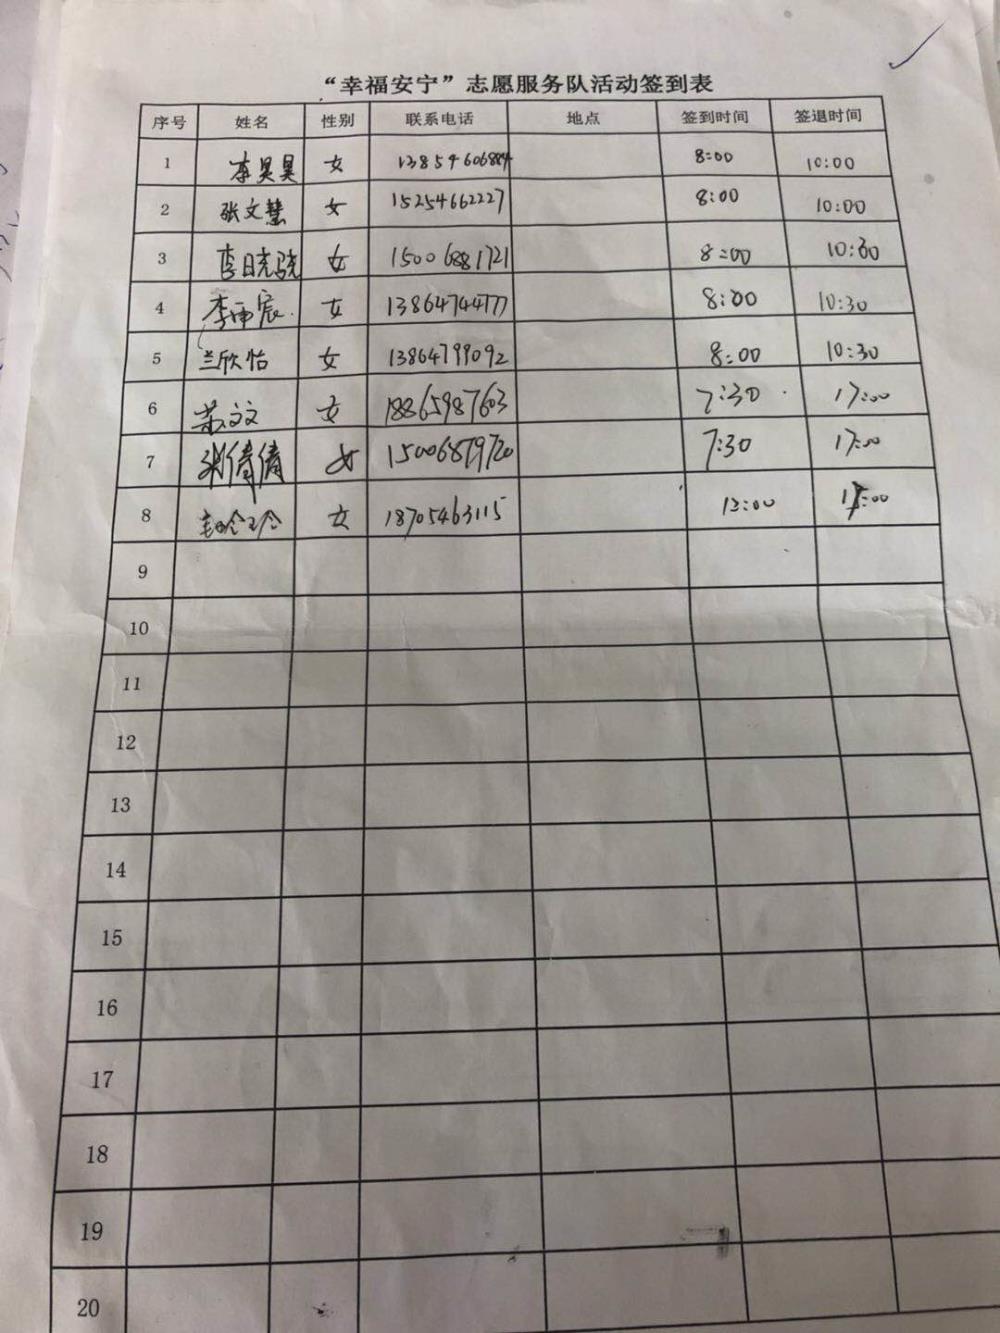 “幸福安宁”志愿服务队活动签到表
序号 姓名 性别 联系电话 地点 签到时间 签退时间
1 李昊昊 女 13854606884 8:00 10:00
2 张文慧 女 15254662227 8:00 10:00
3 李晓骁 女 15006881721 8:00 10:30
4 李雨宸 女 13864744777 8:00 10:30
5 兰欣怡 女 13864799092 8:00 10:30
6 苏文文 女 18865987603 7:30 17:00
7 张倩倩 女 15006879720 7:30 17:00
8 女 18705463115 12:00 17:00
9
10
11
12
13
14
15
16
17
18
19
20